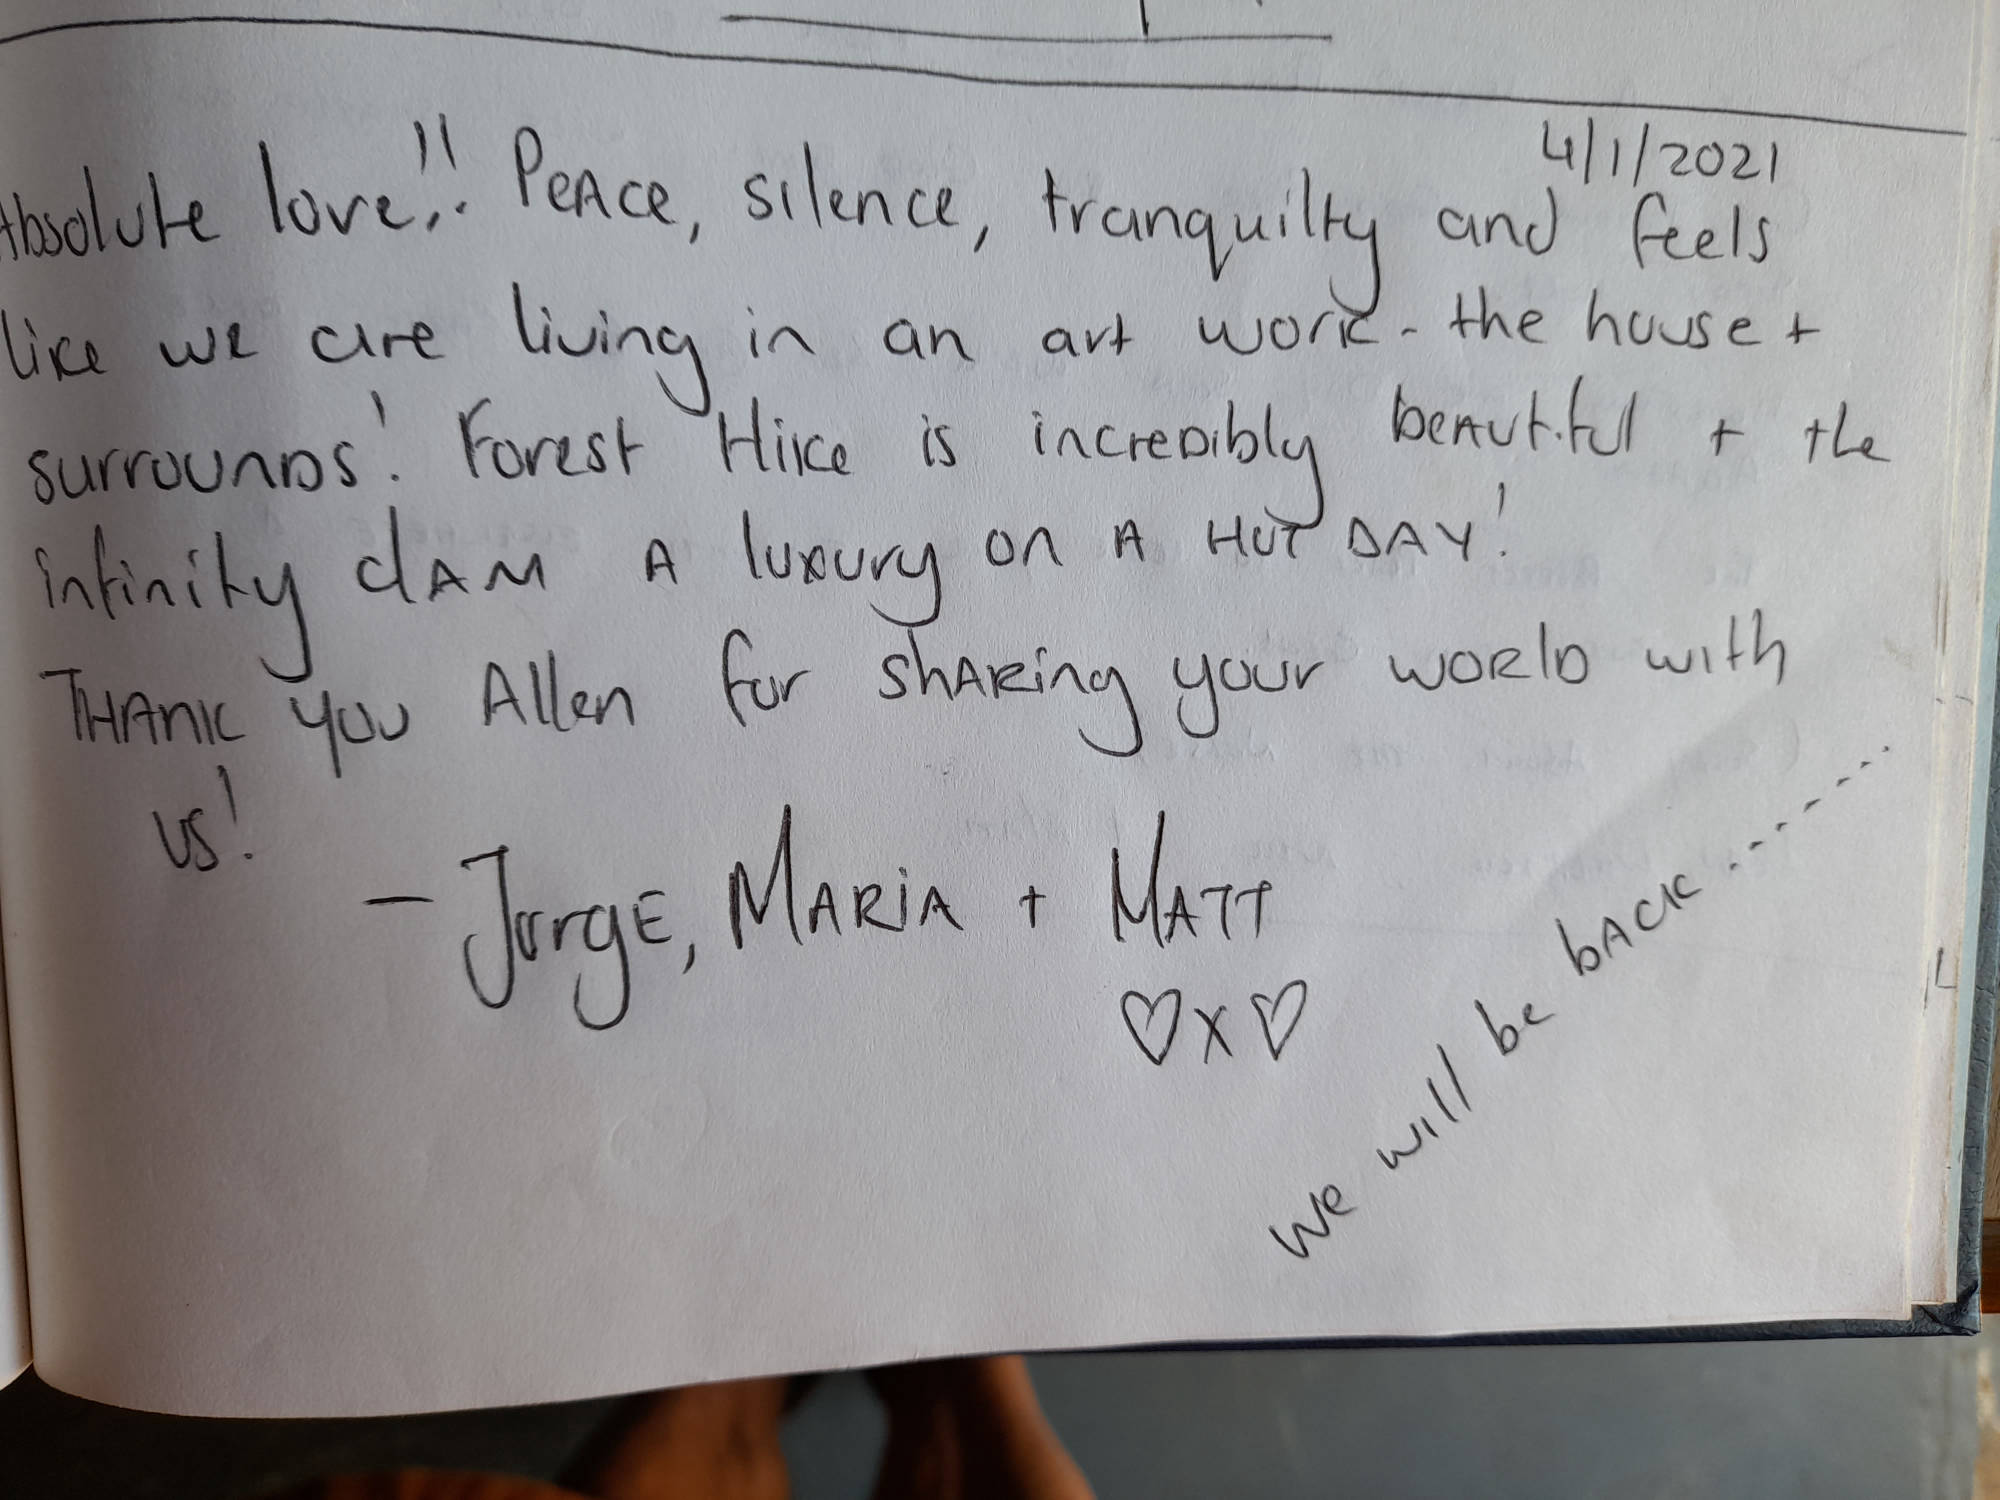 4/1/2021
Absolute love!! Peace, silence, tranquilty and feels
like we are living in an art work - the house +
surrounds! Forest Hike is incredibly beautiful + the
infinity dam a luxury on a HOT DAY!
THANK you Allen for sharing your world with
us!
- Jorge, MARIA + MATT
♡x♡
we will be back ........